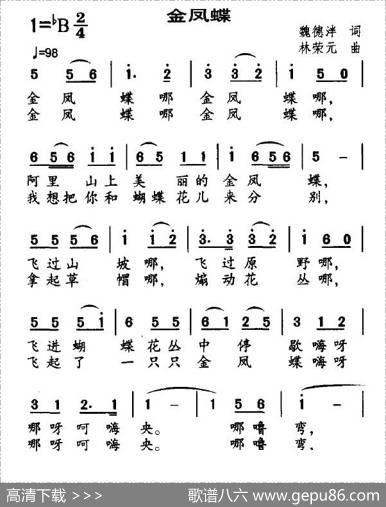 金凤蝶
1=♭B 2/4
魏德泮 词
♩=98
林荣元 曲
5 5 6 | 1· 2 | 3 3 2 | 1 5 0 |
金 凤 蝶 哪 金 凤 蝶 哪,
金 凤 蝶 哪 金 凤 蝶 哪,
6 5 6 1 1 | 6 5 1 1 | 1 6 5 6 | 5 - |
阿 里 山 上 美 丽 的 金 凤 蝶,
我 想 把 你 和 蝴 蝶 花 儿 来 分 别,
5 5 5 6 | 1 1 2 | 3· 3 3 2 | 1 6 0 |
飞 过 山 坡 哪, 飞 过 原 野 哪,
拿 起 草 帽 哪, 煽 动 花 丛 哪,
5 5 5 1 | 5 5 5 | 6 1 6 5 | 3 1 2 |
飞 进 蝴 蝶 花 丛 中 停 歇 嗨 呀
飞 起 了 一 只 只 金 凤 蝶 嗨 呀
3 1 2· 1 | 1 - | 1 5 6 | 1 - |
哪 呀 呵 嗨 央。 哪 噜 弯,
哪 呀 呵 嗨 央。 哪 噜 弯,
高清下载 >>>
歌谱八六 www.gepu86.com